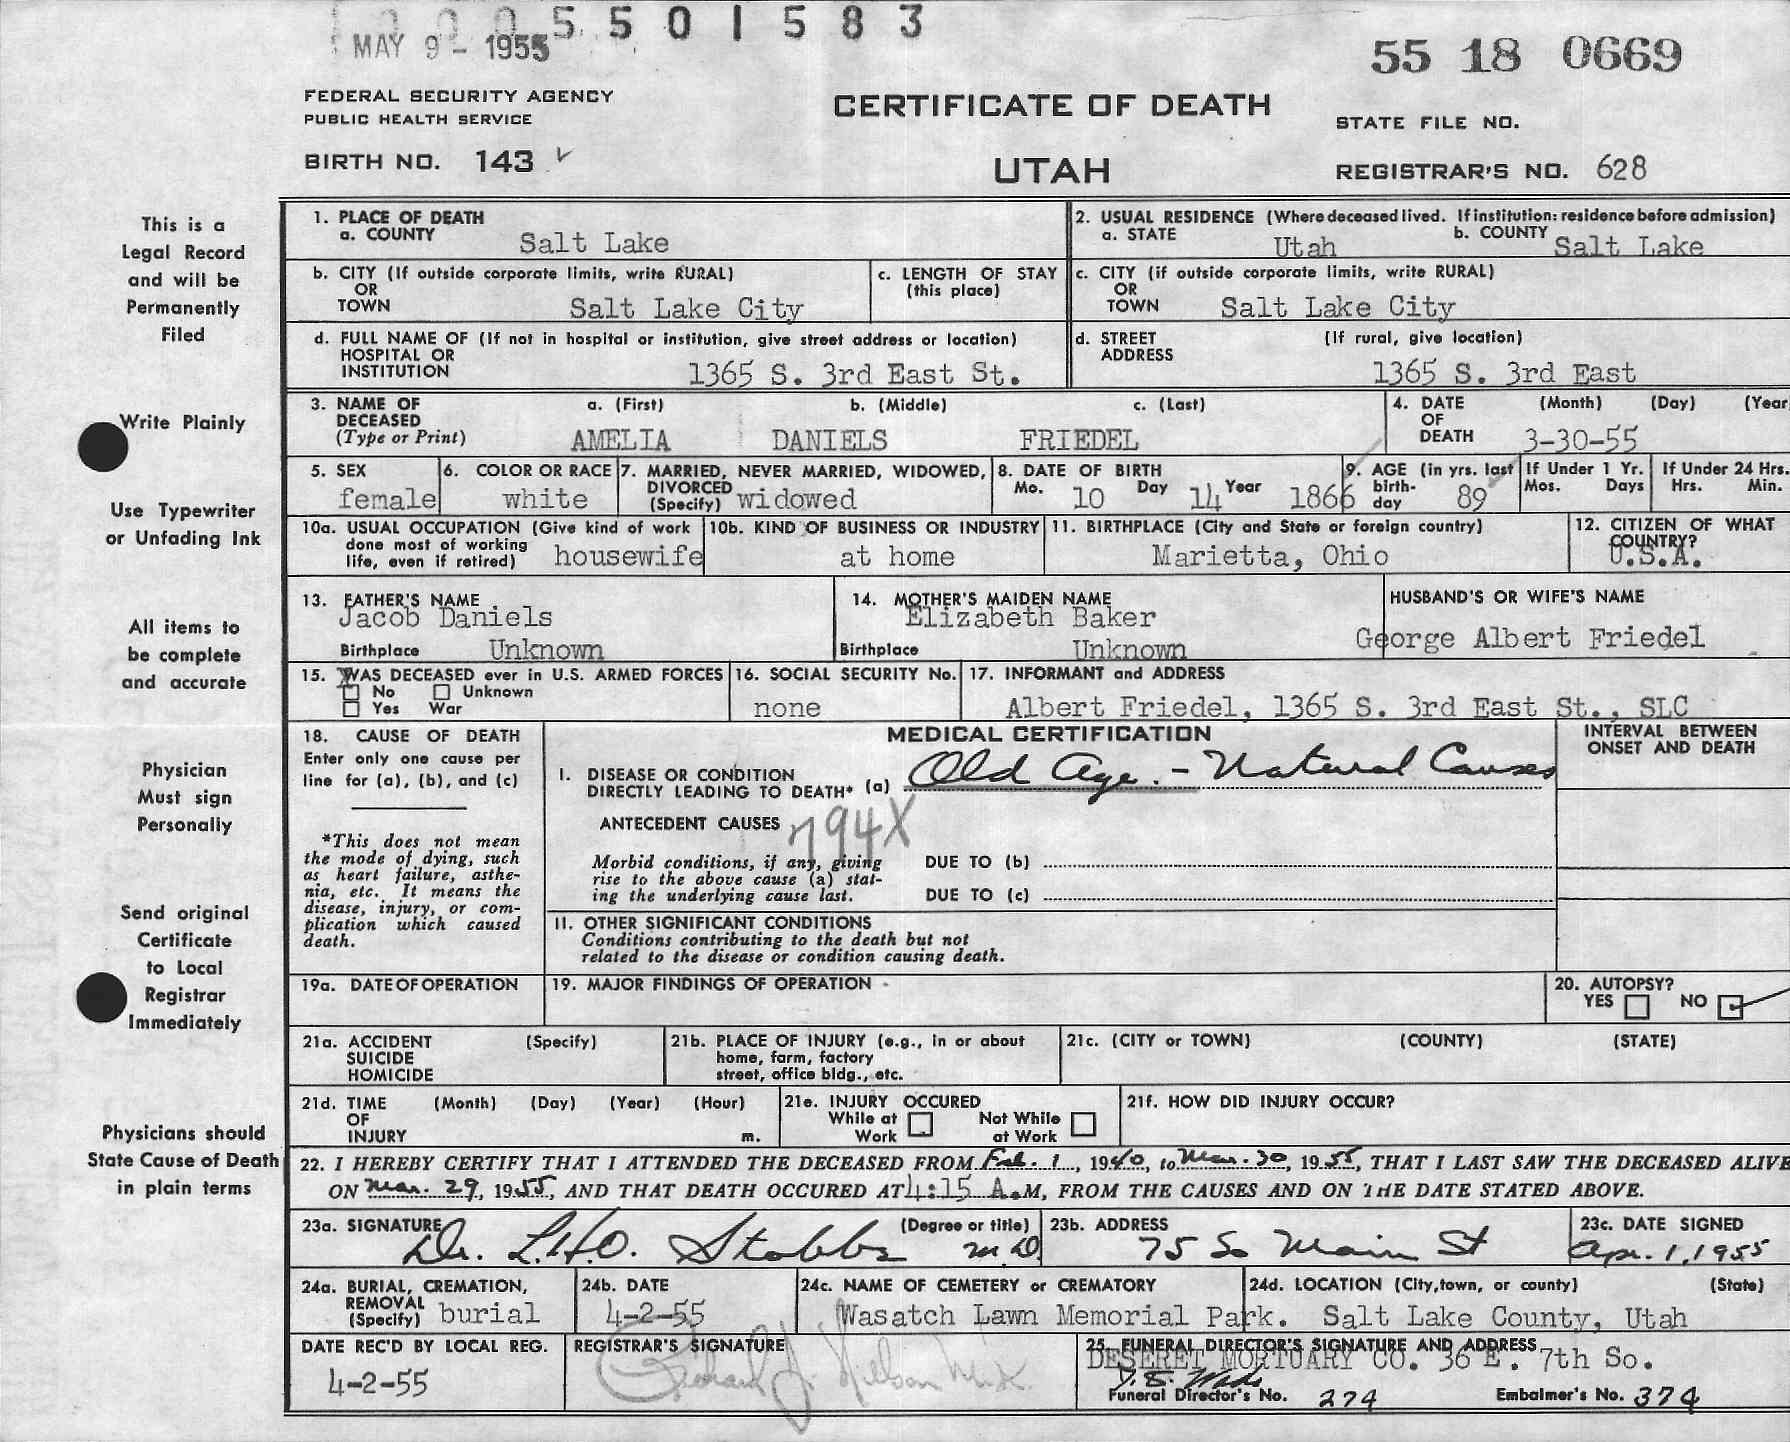 5501583
MAY 9 - 1955
55 18 0669
FEDERAL SECURITY AGENCY
PUBLIC HEALTH SERVICE
CERTIFICATE OF DEATH
STATE FILE NO.
BIRTH NO. 143
UTAH
REGISTRAR'S NO. 628
This is a
Legal Record
and will be
Permanently
Filed
Write Plainly
Use Typewriter
or Unfading Ink
All items to
be complete
and accurate
Physician
Must sign
Personally
Send original
Certificate
to Local
Registrar
Immediately
Physicians should
State Cause of Death
in plain terms
1. PLACE OF DEATH
a. COUNTY Salt Lake
2. USUAL RESIDENCE (Where deceased lived. If institution: residence before admission)
a. STATE Utah b. COUNTY Salt Lake
b. CITY (If outside corporate limits, write RURAL)
OR
TOWN Salt Lake City
c. LENGTH OF STAY
(this place)
c. CITY (if outside corporate limits, write RURAL)
OR
TOWN Salt Lake City
d. FULL NAME OF (If not in hospital or institution, give street address or location)
HOSPITAL OR
INSTITUTION 1365 S. 3rd East St.
d. STREET (If rural, give location)
ADDRESS
1365 S. 3rd East
3. NAME OF a. (First) b. (Middle) c. (Last)
DECEASED
(Type or Print) AMELIA DANIELS FRIEDEL
4. DATE (Month) (Day) (Year
OF
DEATH 3-30-55
5. SEX
female
6. COLOR OR RACE
white
7. MARRIED, NEVER MARRIED, WIDOWED,
DIVORCED
(Specify) widowed
8. DATE OF BIRTH
Mo. 10 Day 14 Year 1866
9. AGE (in yrs. last
birth-
day 89
If Under 1 Yr.
Mos. Days
If Under 24 Hrs.
Hrs. Min.
10a. USUAL OCCUPATION (Give kind of work
done most of working
life, even if retired) housewife
10b. KIND OF BUSINESS OR INDUSTRY
at home
11. BIRTHPLACE (City and State or foreign country)
Marietta, Ohio
12. CITIZEN OF WHAT
COUNTRY?
U.S.A.
13. FATHER'S NAME
Jacob Daniels
Birthplace Unknown
14. MOTHER'S MAIDEN NAME
Elizabeth Baker
Birthplace Unknown
HUSBAND'S OR WIFE'S NAME
George Albert Friedel
15. WAS DECEASED ever in U.S. ARMED FORCES
No Unknown
Yes War
16. SOCIAL SECURITY No.
none
17. INFORMANT and ADDRESS
Albert Friedel, 1365 S. 3rd East St., SLC
18. CAUSE OF DEATH
Enter only one cause per
line for (a), (b), and (c)
*This does not mean
the mode of dying, such
as heart failure, asthe-
nia, etc. It means the
disease, injury, or com-
plication which caused
death.
MEDICAL CERTIFICATION
INTERVAL BETWEEN
ONSET AND DEATH
I. DISEASE OR CONDITION
DIRECTLY LEADING TO DEATH* (a) Old Age. - Natural Causes
ANTECEDENT CAUSES 794X
Morbid conditions, if any, giving
rise to the above cause (a) stat-
ing the underlying cause last.
DUE TO (b)
DUE TO (c)
II. OTHER SIGNIFICANT CONDITIONS
Conditions contributing to the death but not
related to the disease or condition causing death.
19a. DATE OF OPERATION
19. MAJOR FINDINGS OF OPERATION
20. AUTOPSY?
YES NO
21a. ACCIDENT (Specify)
SUICIDE
HOMICIDE
21b. PLACE OF INJURY (e.g., in or about
home, farm, factory
street, office bldg., etc.
21c. (CITY or TOWN) (COUNTY) (STATE)
21d. TIME (Month) (Day) (Year) (Hour)
OF
INJURY m.
21e. INJURY OCCURED
While at Not While
Work at Work
21f. HOW DID INJURY OCCUR?
22. I HEREBY CERTIFY THAT I ATTENDED THE DECEASED FROM Feb. 1, 1940, to Mar. 30, 1955, THAT I LAST SAW THE DECEASED ALIVE
ON Mar. 29, 1955, AND THAT DEATH OCCURED AT 4:15 A.M, FROM THE CAUSES AND ON THE DATE STATED ABOVE.
23a. SIGNATURE (Degree or title)
Dr. L.H.O. Stobbs M.D.
23b. ADDRESS
75 So Main St
23c. DATE SIGNED
Apr. 1, 1955
24a. BURIAL, CREMATION,
REMOVAL
(Specify) burial
24b. DATE
4-2-55
24c. NAME OF CEMETERY or CREMATORY
Wasatch Lawn Memorial Park.
24d. LOCATION (City, town, or county) (State)
Salt Lake County, Utah
DATE REC'D BY LOCAL REG.
4-2-55
REGISTRAR'S SIGNATURE
25. FUNERAL DIRECTOR'S SIGNATURE AND ADDRESS
DESERET MORTUARY CO. 36 E. 7th So.
Funeral Director's No. 274 Embalmer's No. 374